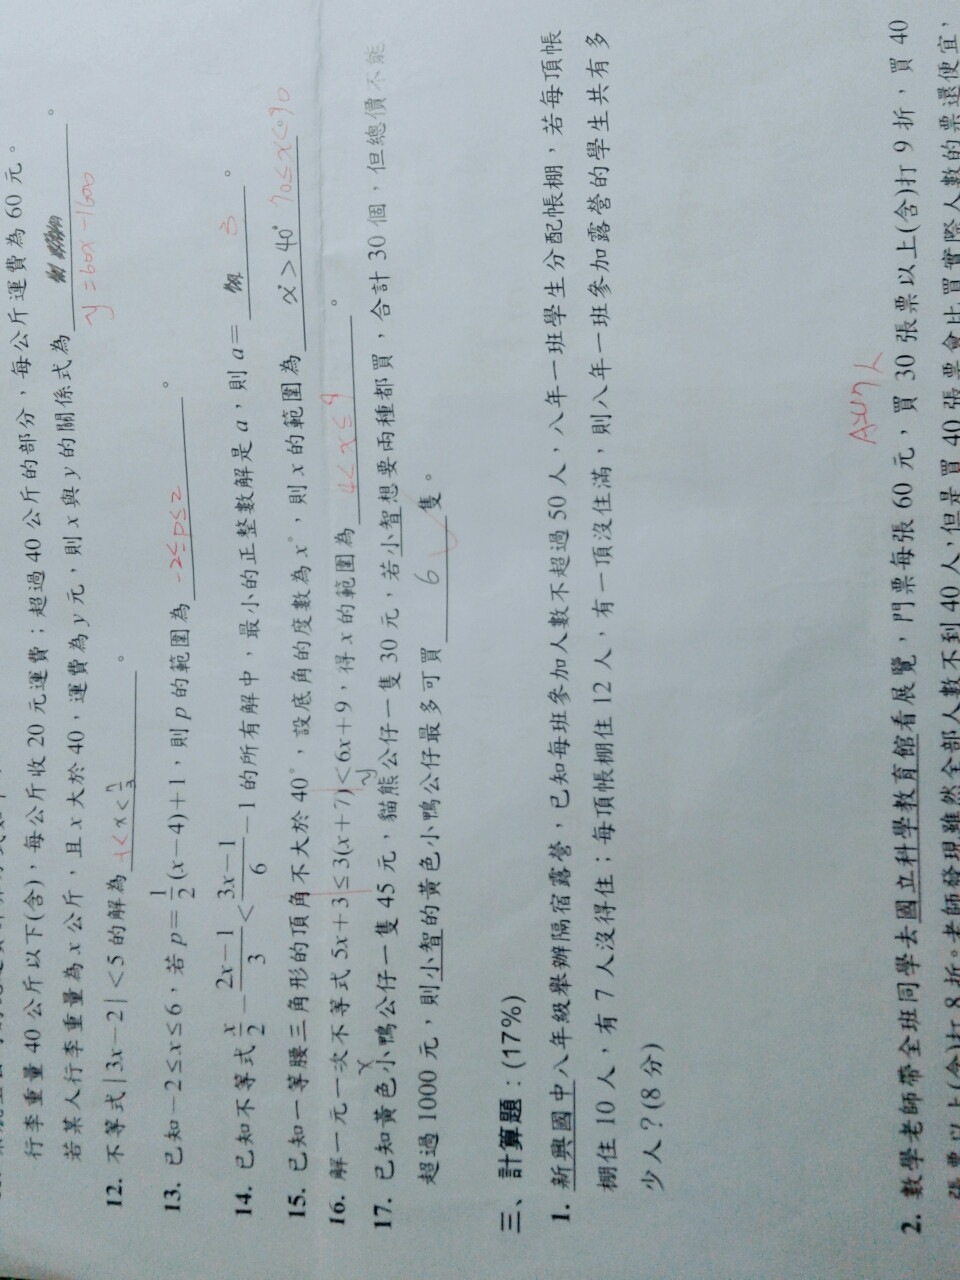 行李重量 40 公斤以下(含)，每公斤收 20 元運費；超過 40 公斤的部分，每公斤運費為 60 元。
若某人行李重量為 x 公斤，且 x 大於 40，運費為 y 元，則 x 與 y 的關係式為 y=60x-1600 。
12. 不等式|3x-2|<5 的解為 -1<x<7/3 。
13. 已知-2≤x≤6，若 p=1/2(x-4)+1，則 p 的範圍為 -2≤p≤2 。
14. 已知不等式 x/2 - (2x-1)/3 < (3x-1)/6 -1 的所有解中，最小的正整數解是 a，則 a= 3 。
15. 已知一等腰三角形的頂角不大於 40°，設底角的度數為 x°，則 x 的範圍為 x>40° 70≤x<90
16. 解一元一次不等式 5x+3≤3(x+7)<6x+9，得 x 的範圍為 4<x≤9 。
17. 已知黃色小鴨公仔一隻 45 元，貓熊公仔一隻 30 元，若小智想要兩種都買，合計 30 個，但總價不能
x y
超過 1000 元，則小智的黃色小鴨公仔最多可買 6 隻。
三、計算題：(17%)
1. 新興國中八年級舉辦隔宿露營，已知每班參加人數不超過 50 人，八年一班學生分配帳棚，若每頂帳
棚住 10 人，有 7 人沒得住；每頂帳棚住 12 人，有一頂沒住滿，則八年一班參加露營的學生共有多
少人？(8 分)
A：47人
2. 數學老師帶全班同學去國立科學教育館看展覽，門票每張 60 元，買 30 張票以上(含)打 9 折，買 40
張票以上(含)打 8 折。老師發現雖然全部人數不到 40 人，但是買 40 張票會比買實際人數的票還便宜，